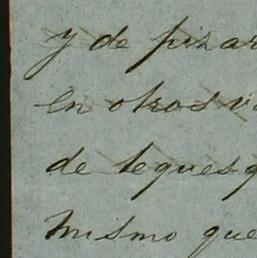 y de pizar
En otros va
de tequesq
Mismo que